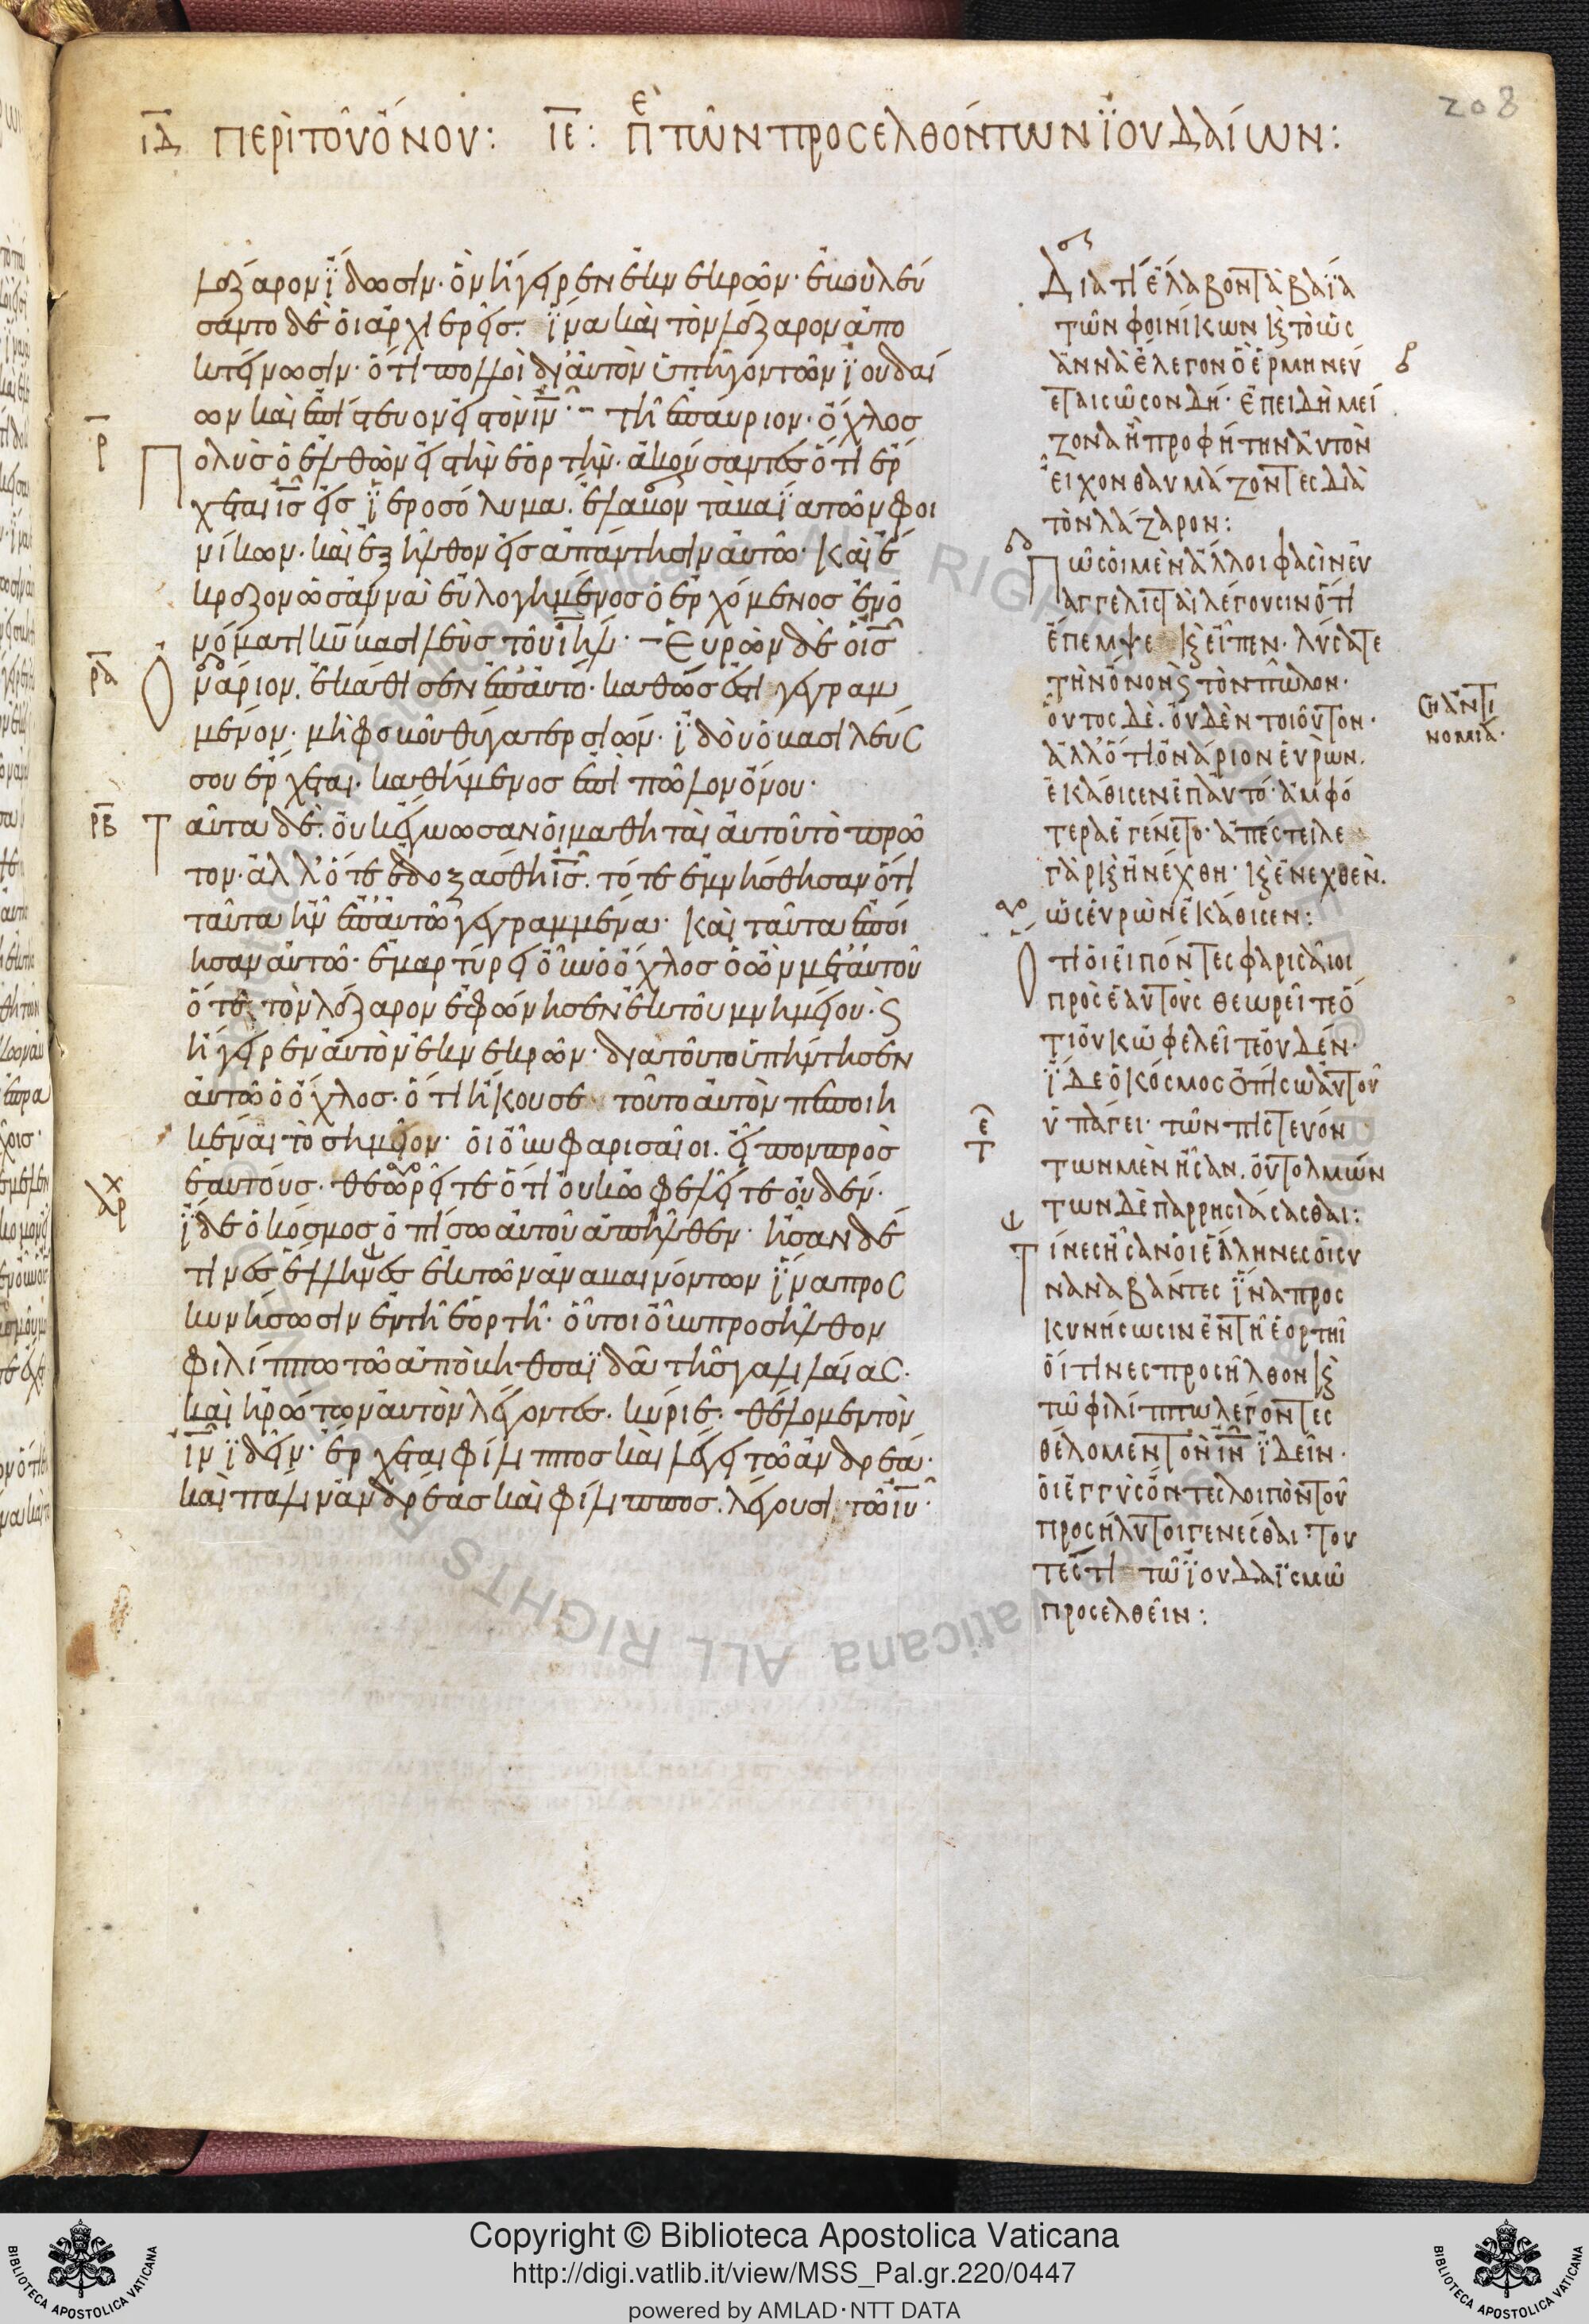 208
ιδ περὶ τοῦ ὄνου: ιε: πε τῶν προσελθόντων ϊουδαίων:
λάζαρον ἴδωσιν· ὃν ἤγειρεν ἐκ νεκρῶν· ἐβουλεύ
σαντο δὲ οἱ ἀρχιερεῖς. ἵνα καὶ τὸν λάζαρον ἀπο
κτείνωσιν· ὅτι πολλοὶ δι' αὐτὸν ὑπῆγον τῶν ϊουδαί
ων καὶ ἐπίστευον εἰς τὸν ιν· τῆ ἐπαύριον· ὄχλος
ρ
πολὺς ὁ ἐλθὼν εἰς τὴν ἑορτὴν· ἀκούσαντες ὅτι ἔρ
χεται ις εἰς ϊεροσόλυμα. ἔλαβον τὰ βαΐα τῶν φοι
νίκων. καὶ ἐξῆλθον εἰς ἀπάντησιν αὐτῶ· καὶ ἔ
κραζον ὡσάννα εὐλογημένος ὁ ἐρχόμενος ἐν ὀ
νόματι κυ βασιλεὺς τοῦ ιηλ· εὑρὼν δὲ ὁ ις
ρα
ὀνάριον. ἐκάθισεν ἐπ' αὐτό· καθώς ἐστι γεγραμ
μένον. μὴ φοβοῦ θύγατερ σιών· ἰδοὺ ὁ βασιλεύς
σου ἔρχεται. καθήμενος ἐπὶ πῶλον ὄνου·
ρβ
ταῦτα δὲ. οὐκ ἔγνωσαν οἱ μαθηταὶ αὐτοῦ τὸ πρῶ
τον· ἀλλ' ὅτε ἐδοξάσθη ις. τότε ἐμνήσθησαν ὅτι
ταῦτα ἦν ἐπ' αὐτῶ γεγραμμένα· καὶ ταῦτα ἐποί
ησαν αὐτῶ· ἐμαρτύρει οὖν ὁ ὄχλος ὁ ὢν μετ' αὐτοῦ
ὅτε τὸν λάζαρον ἐφώνησεν ἐκ τοῦ μνημείου. ϛ
ἤγειρεν αὐτὸν ἐκ νεκρῶν· διατοῦτο ὑπήντησεν
αὐτῶ ὁ ὄχλος. ὅτι ἤκουσε τοῦτο αὐτὸν πεποιη
κέναι τὸ σημεῖον· οἱ οὖν φαρισαῖοι. εἶπον πρὸς
ἑαυτούς. θεωρεῖτε ὅτι οὐκ ὠφελεῖτε οὐδέν.
ἴδε ὁ κόσμος ὀπίσω αὐτοῦ ἀπῆλθεν· ἦσαν δέ
τινες ἕλληνες ἐκ τῶν ἀναβαινόντων ἵνα προς
κυνήσωσιν ἐν τῆ ἑορτῆ· οὗτοι οὖν προσῆλθον
φιλίππω τῶ ἀπὸ βηθσαϊδὰ τῆς γαλιλαίας.
καὶ ἠρώτων αὐτὸν λέγοντες. κύριε. θέλομεν τὸν
ιν ἰδεῖν· ἔρχεται φίλιππος καὶ λέγει τῶ ἀνδρέα·
καὶ πάλιν ἀνδρέας καὶ φίλιππος. λέγουσι τῶ ιυ·
Διατί ἔλαβον τὰ βαΐα
τῶν φοινίκων κ τὸ ὡς
ἀννὰ ἔλεγον ὃ ἑρμηνεύ
εται σῶσον δή· ἐπειδὴ μεί
ζονα ἢ προφήτην αὐτὸν
εἶχον θαυμάζοντες διὰ
τὸν λάζαρον:
πῶς οἱ μὲν ἄλλοι φασὶν εὐ
αγγελισταὶ λέγουσιν ὅτι
ἔπεμψε κ εἶπεν· λύσατε
τὴν ὄνον ϛ τὸν πῶλον·
οὗτος δὲ. οὐδὲν τοιοῦτον·
ἀλλ' ὅτι ὀνάριον εὑρὼν.
ἐκάθισεν ἐπ' αὐτό· ἀμφό
τερα ἐγένετο· ἀπέστειλε
γὰρ κ ἠνέχθη· κ ἐνεχθὲν.
ὡς εὑρὼν ἐκάθισεν:
ὅτι οἱ εἰπόντες φαρισαῖοι
πρὸς ἑαυτοὺς θεωρεῖτε ὅ
τι οὐκ ὠφελεῖτε οὐδέν·
ἴδε ὁ κόσμος ὀπίσω αὐτοῦ
ὑπάγει· τῶν πιστευόν
των μὲν ἦσαν. οὐ τολμών
των δὲ παρρησιάσασθαι:
τίνες ἦσαν οἱ ἕλληνες οἱ συ
ναναβάντες ἵνα προς
κυνήσωσιν ἐν τῆ ἑορτῆ
οἵτινες προσῆλθον κ
τῶ φιλίππω λέγοντες
θέλομεν τὸν ιν ἰδεῖν·
οἱ ἐγγὺς ὄντες λοιπὸν τοῦ
προσήλυτοι γενέσθαι· του
τέστι τῶ ϊουδαϊσμῶ
προσελθεῖν:
Copyright © Biblioteca Apostolica Vaticana
http://digi.vatlib.it/view/MSS_Pal.gr.220/0447
powered by AMLAD·NTT DATA